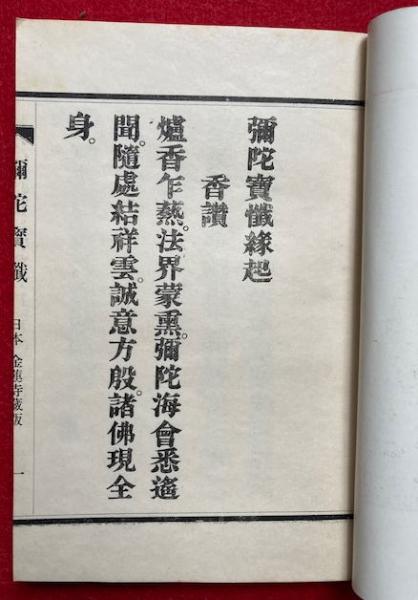 彌陀寶懺緣起
香讚
爐香乍爇。法界蒙熏。彌陀海會悉遙
聞。隨處結祥雲。誠意方殷。諸佛現全
身。
彌陀寶懺 日本 金蓮寺藏版 一